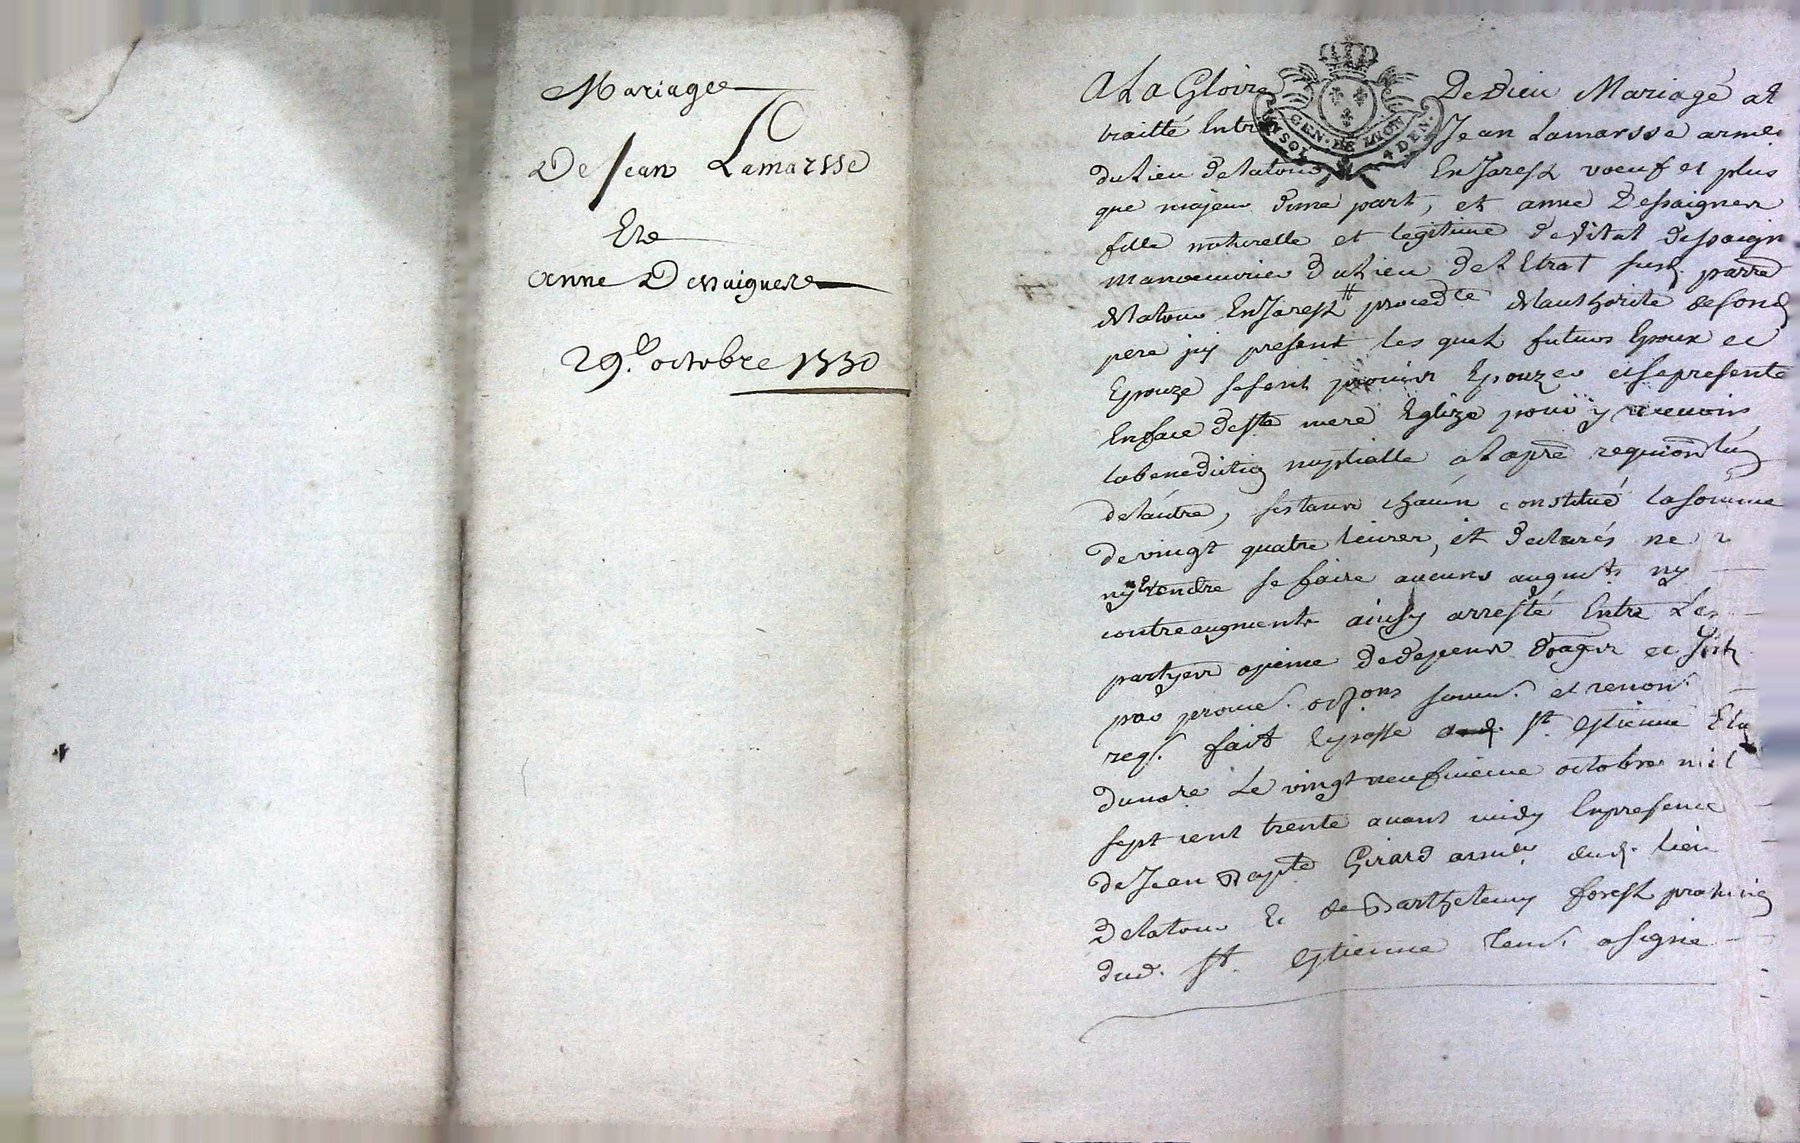 Mariage
De Jean Lamarsse
Et
Anne Dessaignes
29.e octobre 1730
GEN. DE LYON
UN SOL 4 DEN.
A La Gloire De Dieu Mariage at
traitté Entre Jean Lamarsse armu
du Lieu de latour En Jarest voeuf et plus
que majeur d'une part, et anne Dessaignes
fille naturelle et legitime de Vital dessaign
manoeuvrier du Lieu de L'Etrat susd. parre
de latour En Jarest procedte de l'authorité de sond
pere icy present les quels futurs Epoux et
Epouze se sont promis Epouzer et se presenter
En face de ste mere Eglize pour y recevoir
la benediction nuptialle
de l'autre, constitué la somme
de vingt quatre livres, et declarés ne
ny Entendre se faire aucuns augmts ny
contreaugments ainsy arresté Entre Les
partyes apeine de depens et
par prome. soum. et renon.
req. fait Et passé St Estienne
le vingt neufvieme octobre mil
sept cent trente avant midy En presence
de Jean Bapte Girard armu. dud. lieu
De latour Et de Barthelemy forest praticien
dud. St. Estienne a signé